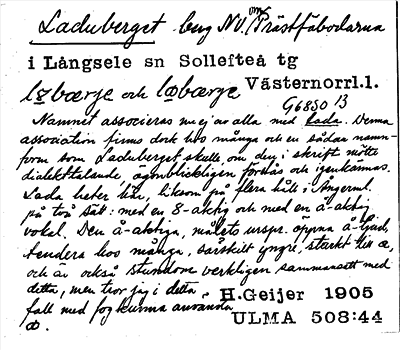 Laduberget berg NV. om Prästfäbodarna
i Långsele sn Sollefteå tg
och Västernorrl.l.
G6850 B
Namnet associeras mej av alla med lada. Denna
association finns dock hos många och en sådan namn-
form som Laduberget skulle, om den i skrift mötte
dialekttalande, ögonblickligen förstås och igenkännas.
Lada heter här, liksom på flera håll i Ångerml.
på två sätt: med en 8-aktig och med en å-aktig
vokal. Den å-aktiga, målets urspr. öppna å-ljud,
tendera hos många, särskilt yngre, starkt till œ,
och är också stundom verkligen sammansatt med
detta, men tror jag i detta H.Geijer 1905
fall med fog kunna använda ULMA 508:44
œ.